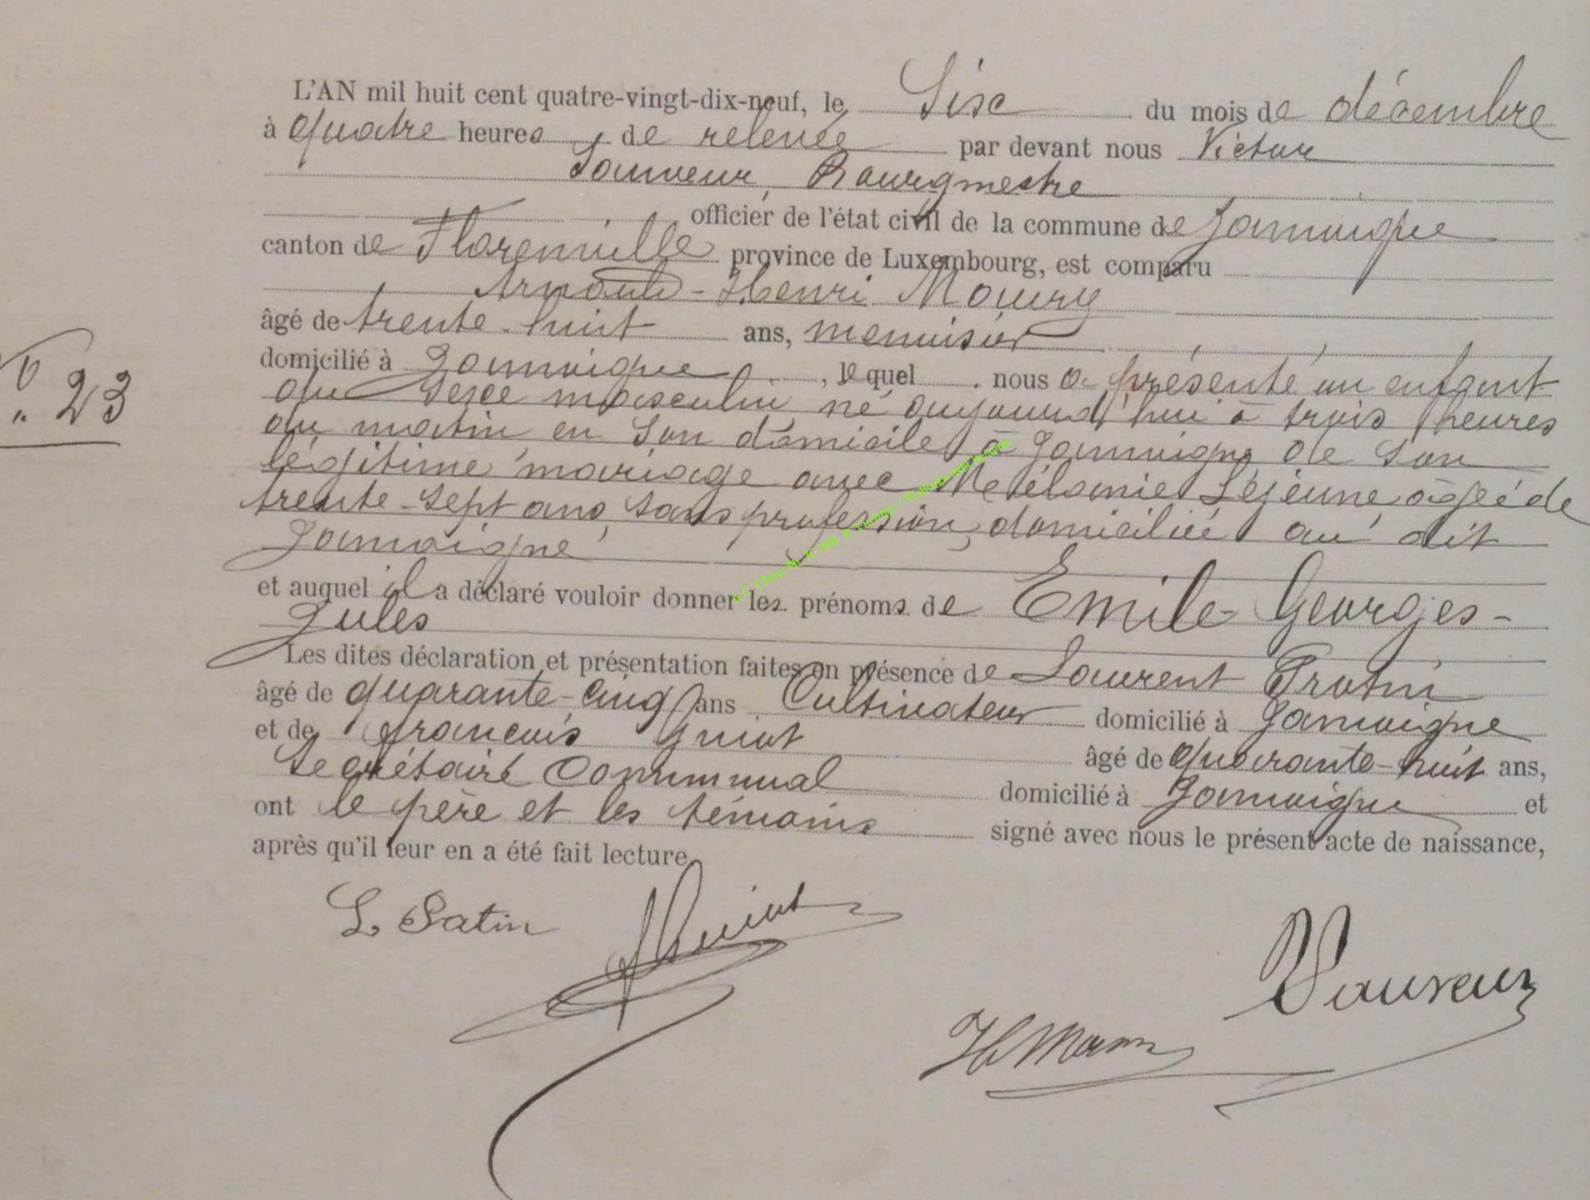 L'AN mil huit cent quatre-vingt-dix-neuf, le Six du mois de décembre
à quatre heures de relevée par devant nous Victor
Sauveur, Bourgmestre
officier de l'état civil de la commune de Jamoigne
canton de Florenville province de Luxembourg, est comparu
Arnould-Henri Moury
âgé de trente-huit ans, menuisier
domicilié à Jamoigne, lequel nous a présenté un enfant
du sexe masculin né aujourd'hui à trois heures
N° 23
du matin en son domicile à Jamoigne de son
légitime mariage avec Mélanie Lejeune âgée de
trente-sept ans, sans profession, domiciliée au dit
Jamoigne
et auquel il a déclaré vouloir donner les prénoms de Emile-Georges-
Jules
Les dites déclaration et présentation faites en présence de Laurent
âgé de quarante-cinq ans Cultivateur domicilié à Jamoigne
et de françois Guiot âgé de quarante-huit ans,
Secrétaire Communal domicilié à Jamoigne et
ont le père et les témoins signé avec nous le présent acte de naissance,
après qu'il leur en a été fait lecture
L. Patin Guiot
VSauveur
H Moury